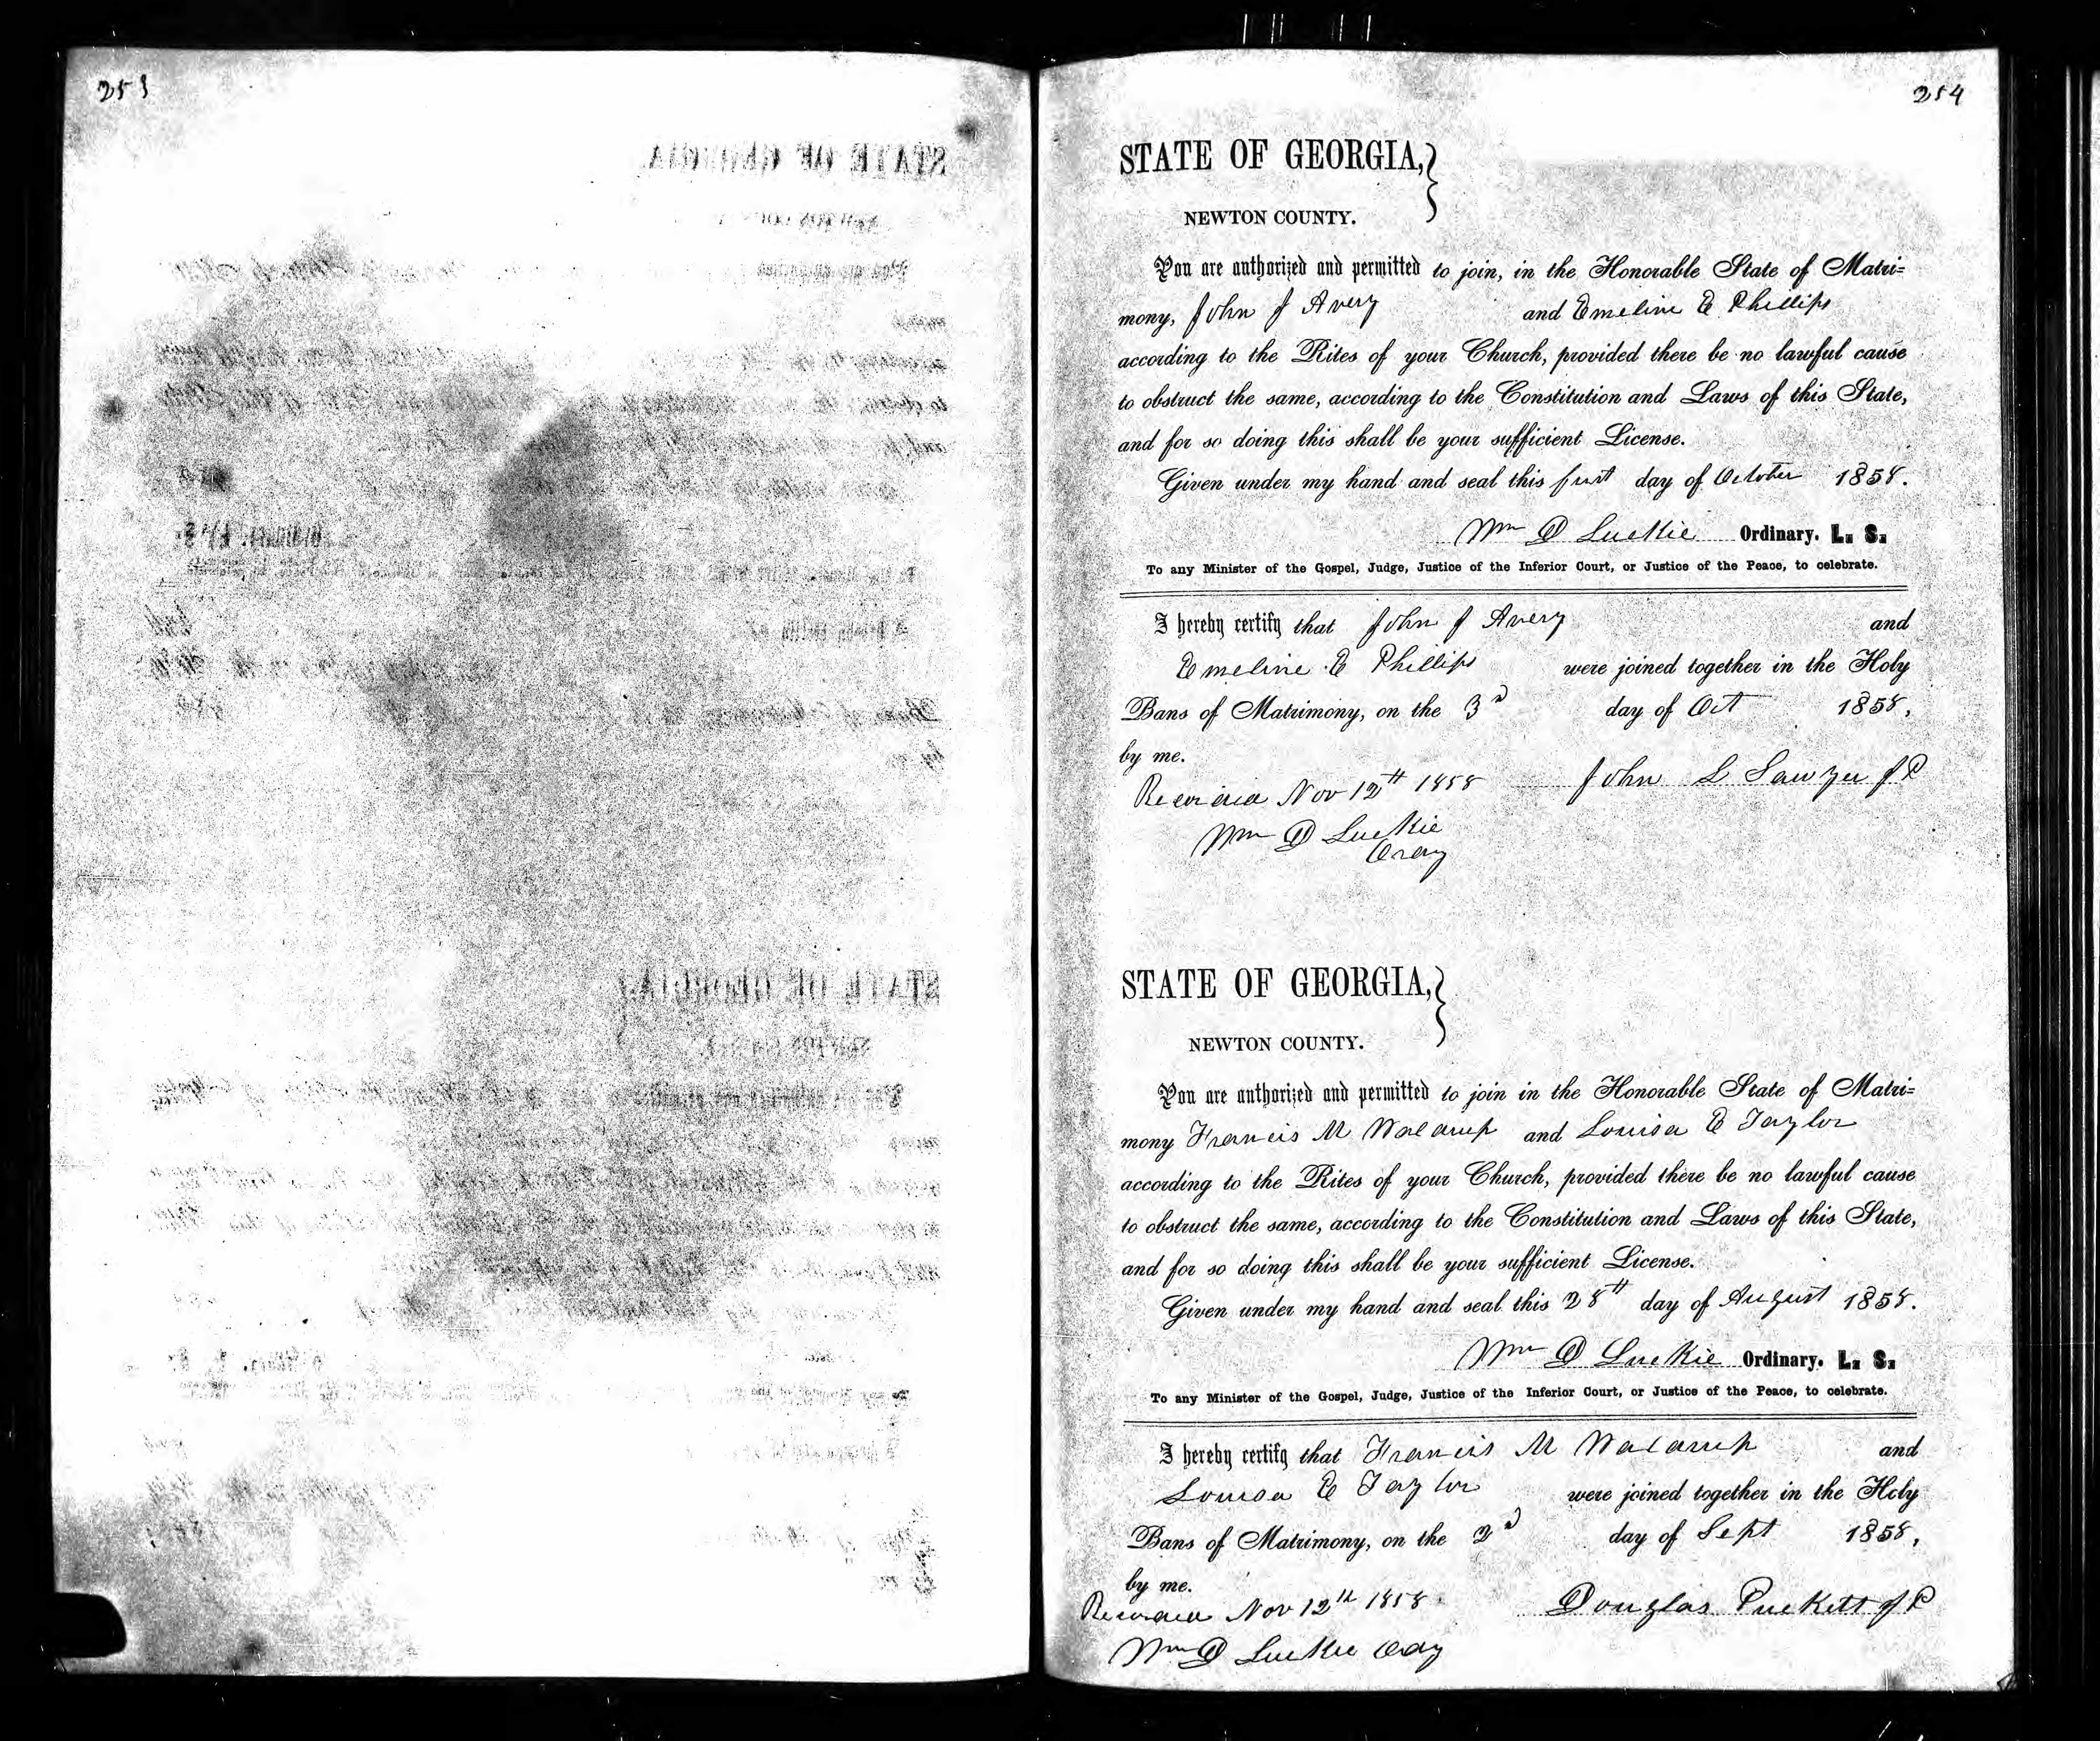 253
254
STATE OF GEORGIA,
NEWTON COUNTY.
You are authorized and permitted to join, in the Honorable State of Matri=
mony, John J Avery and Emeline E Phillips
according to the Rites of your Church, provided there be no lawful cause
to obstruct the same, according to the Constitution and Laws of this State,
and for so doing this shall be your sufficient License.
Given under my hand and seal this first day of October 1858.
Wm D Luckie Ordinary. L. S.
To any Minister of the Gospel, Judge, Justice of the Inferior Court, or Justice of the Peace, to celebrate.
I hereby certify that John J Avery and
Emeline E Phillips were joined together in the Holy
Bans of Matrimony, on the 3d day of Oct 1858,
by me.
Recorded Nov 12th 1858 John L Sawyer J P
Wm D Luckie
Ordy
STATE OF GEORGIA,
NEWTON COUNTY.
You are authorized and permitted to join in the Honorable State of Matri=
mony Francis M and Louisa E Taylor
according to the Rites of your Church, provided there be no lawful cause
to obstruct the same, according to the Constitution and Laws of this State,
and for so doing this shall be your sufficient License.
Given under my hand and seal this 28th day of August 1858.
Wm D Luckie Ordinary. L. S.
To any Minister of the Gospel, Judge, Justice of the Inferior Court, or Justice of the Peace, to celebrate.
I hereby certify that Francis M and
Louisa E Taylor were joined together in the Holy
Bans of Matrimony, on the 2d day of Sept 1858,
by me.
Recorded Nov 12th 1858 Douglas Puckett J P
Wm D Luckie Ordy